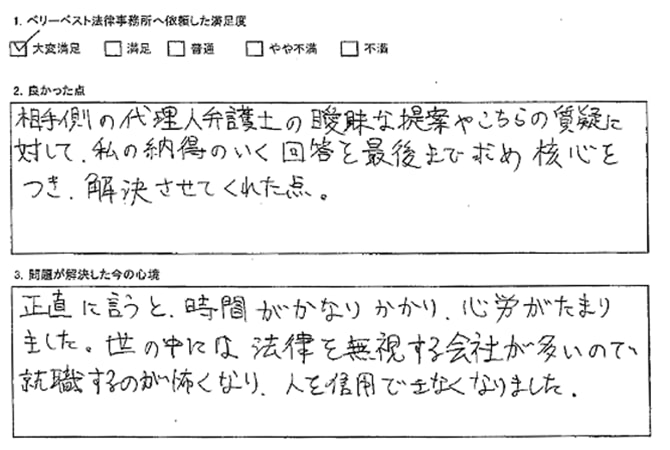 1. ベリーベスト法律事務所へ依頼した満足度
大変満足 満足 普通 やや不満 不満
2. 良かった点
相手側の代理人弁護士の曖昧な提案やこちらの質疑に
対して、私の納得のいく回答を最後まで求め核心を
つき、解決させてくれた点。
3. 問題が解決した今の心境
正直に言うと、時間がかなりかかり、心労がたまり
ました。世の中には法律を無視する会社が多いので、
就職するのが怖くなり、人を信用できなくなりました。